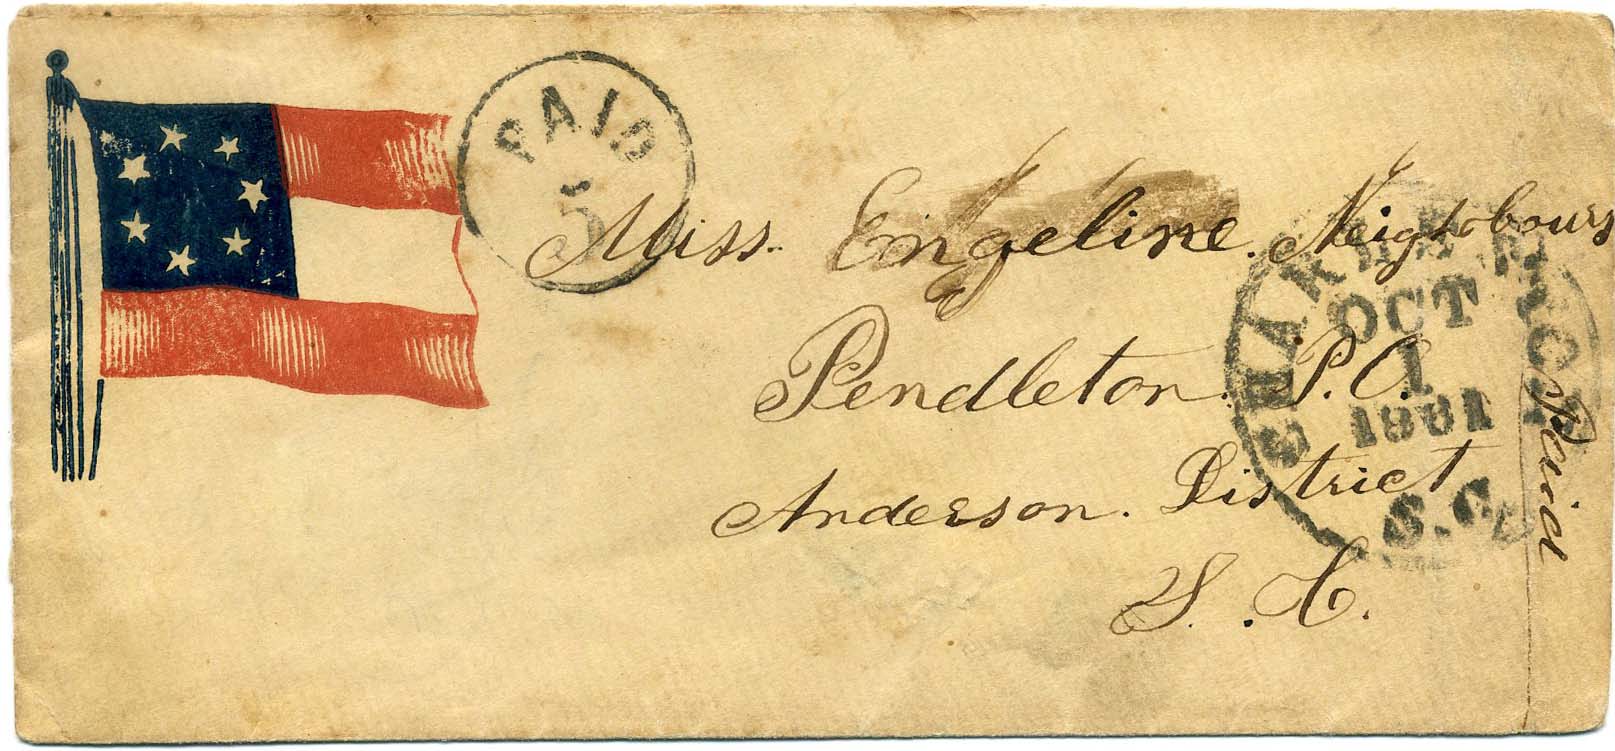 PAID
5
Miss. Engeline. Neighbours
Pendleton. P.O.
Anderson. District
S. C.
OCT
1
1861
S.C.
Paid